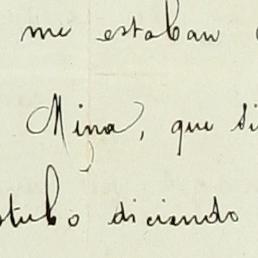 me estaban
Mina, que si
stubo diciendo